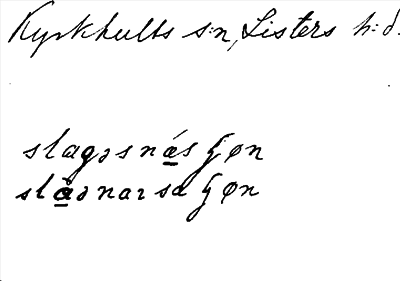 Kyrkhults s:n, Listers h:d.
slagǝsná̱s ʃøn
slå̱ǝnaɿsa ʃøn